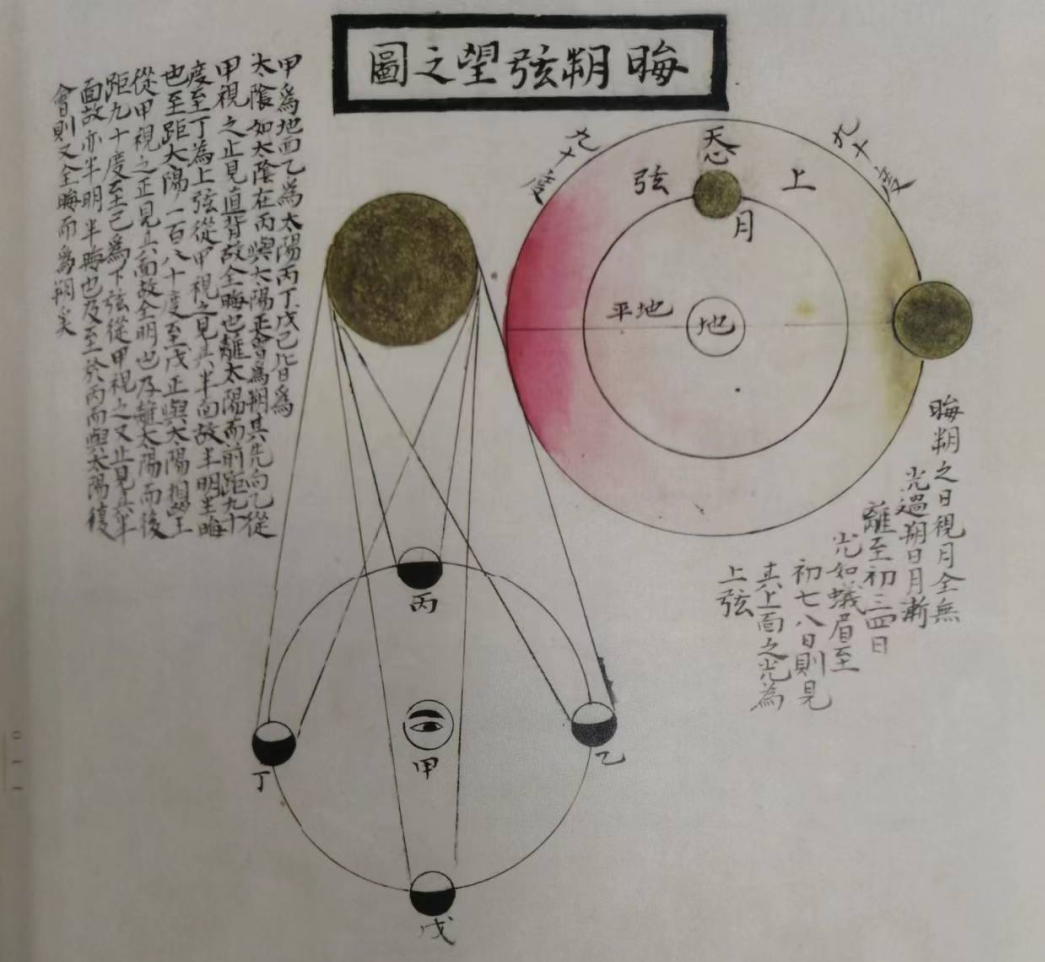 晦朔弦望之圖
甲為地面乙為太陽丙丁戊己皆為
太陰如太陰在丙與太陽正會為朔其光向乙從
甲視之止見直背故全晦也離太陽而前距九十
度至丁為上弦從甲視之見其半向故半明半晦
也至距大陽一百八十度至戊正與大陽相望
從甲視之正見其面故全明也及離太陽而後
距九十度至己為下弦從甲視之又止見其半
面故亦半明半晦也及至於丙而與太陽復
會則又全晦而為朔矣
九十度
九十度
天
上
弦
月
平地
地
晦朔之日視月全無
光過朔日月漸
離至初三四日
光如蛾眉至
初七八日則見
其上面之光為
上弦
丙
甲
丁
乙
戊